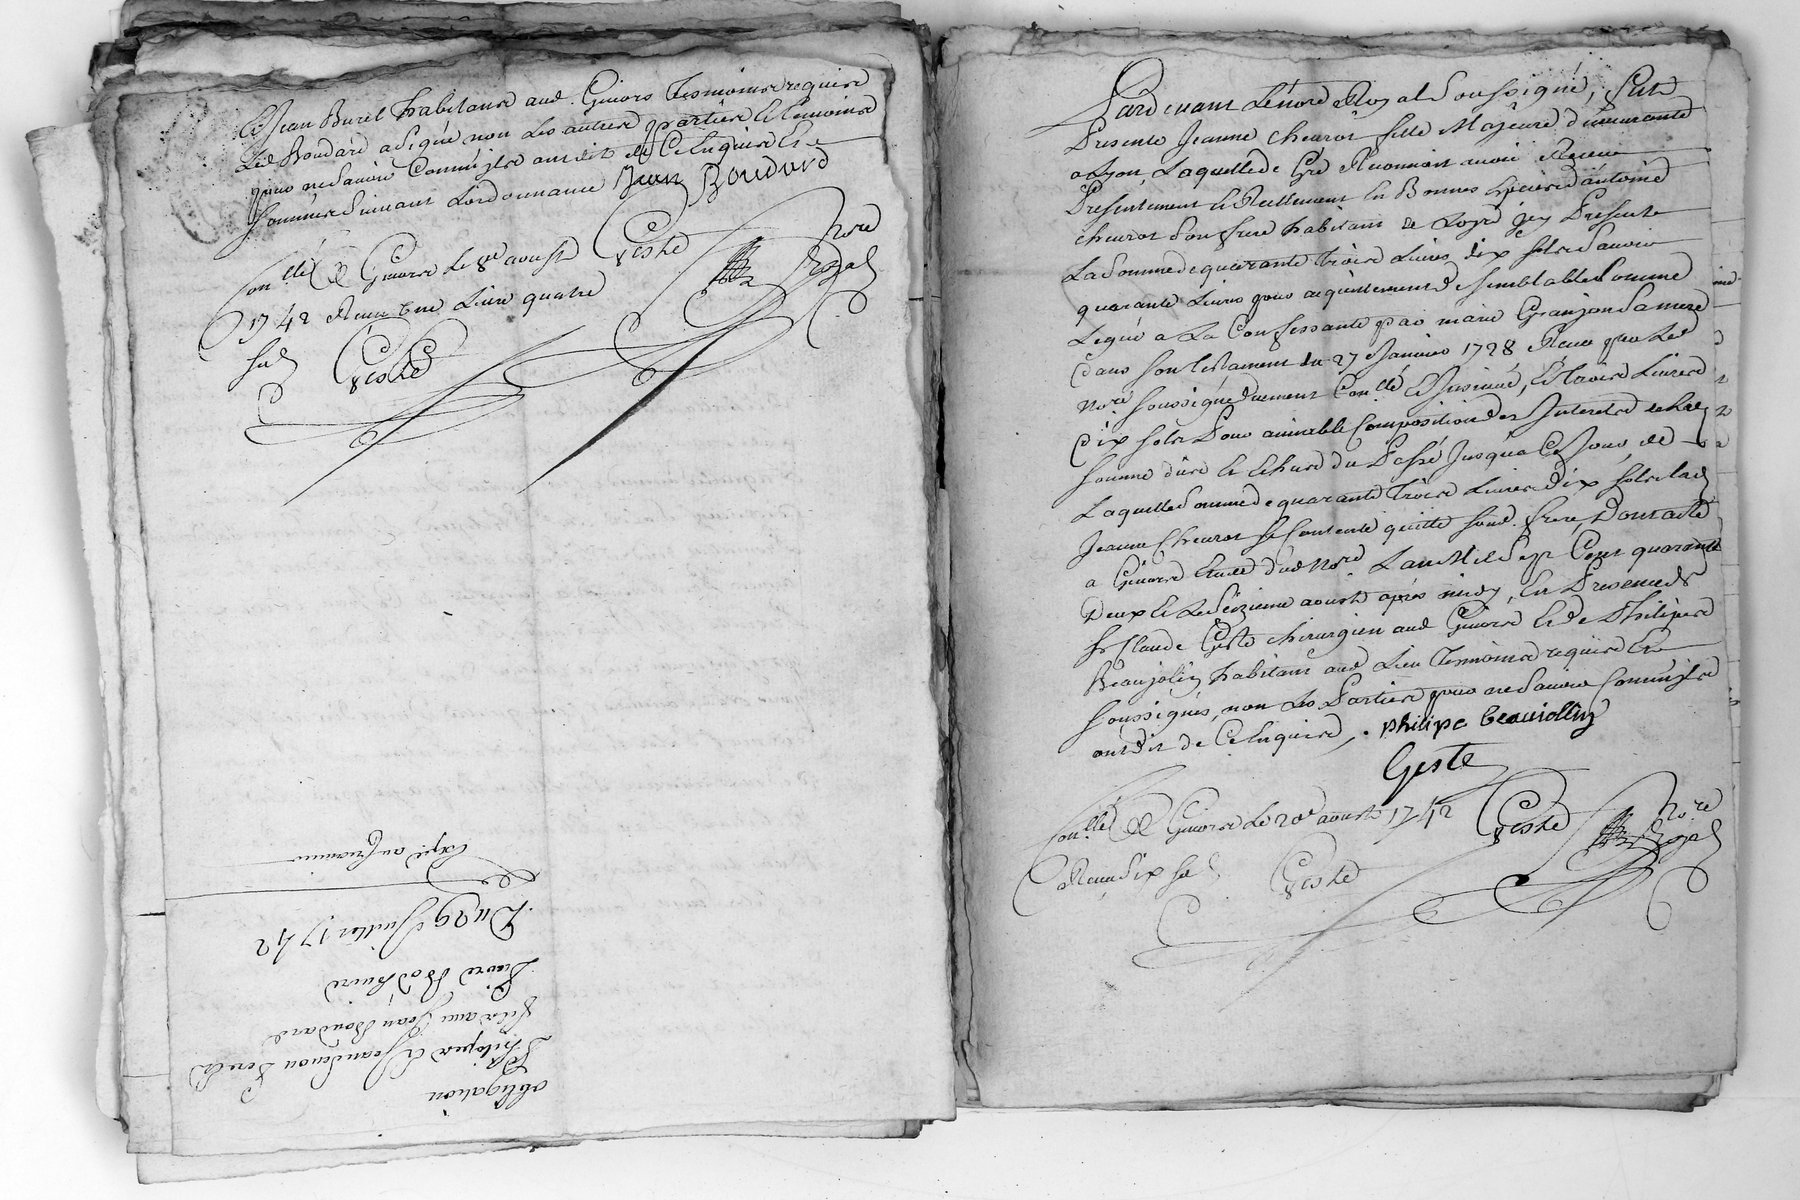 Et Jean Burel habitans aud. Givors Tesmoins requis
Led Boudard a signé non les autres parties Et temoins
pour ne Scavoir Comm'ils ont dit de Ce Enquis Et
sommés Suivant Lordonnance Jean Boudard
Geste Nore Royal
Con.llé A Givors Le 8e aoust
1742 Reçu une Livre quatre
sols Geste
obligation
Philoper & Jean Senon Pere &
fils au S. Jean Boudard
Livre
Du 29e Juillet 1742
Expé au Creancier
Pardevant Le Nore Royal Soussigné, fut
Presente Jeanne Cheurot fille Majeure demeurante
a Lyon, Laquelle de Gré Reconnoit avoir Receu
Presentement & Reellement En Bonnes Especes d'antoine
Cheurot Son frere habitant de Loyre jcy Present
La Somme de quarante Trois Livres dix sols Scavoir
quarante Livres pour acquittement de semblable Somme
Legué a La Confessante par marie Granjon Sa mere
dans son testament du 27 Janvier 1728 Receu par Le d
Nore soussigné duement Con.llé & Insinué, & Trois Livres
dix sols Pour aimable Composition des Interets de lad
somme dûs & Echus du Passé Jusqu'a Ce Jour, de
Laquelle Somme de quarante trois Livres Dix sols lad
Jeanne Cheurot se Contente quitte sond. frere Dont acte
a Givors Etude dud Nore Lan Mil Sept Cent quarante
Deux & Le Seizieme aoust après midy, En Presence de
Sr Claude Geste chirurgien aud Givors & de Philipe
Beaujolin habitant aud Lieu Tesmoins requis Et
soussignés, non Les Parties pour ne Scavoir Comm'ils
ont dit de Ce Enquis, . philipe beauiollin
Geste
Geste Nore Royal
Con.llé A Givors Le 20e aoust 1742
Reçu Dix sols Geste